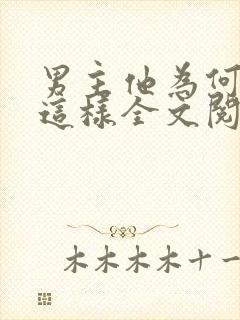 男主他為何
這樣全文閱
木木木木十一